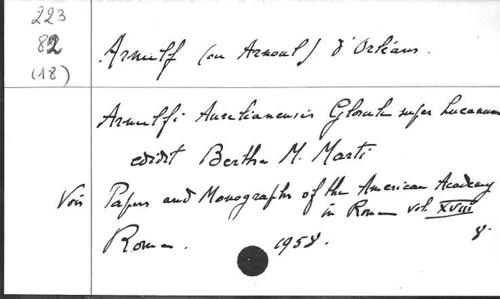 223
82
(18)
Arnulf (ou Arnoul) d'Orléans.
Arnulfi Aurelianensis Glosule super Lucanum
edidit Bertha M. Marti
Voir Papers and Monographs of the American Academy
in Rome vol. XVIII
Rome. 1958. 8°